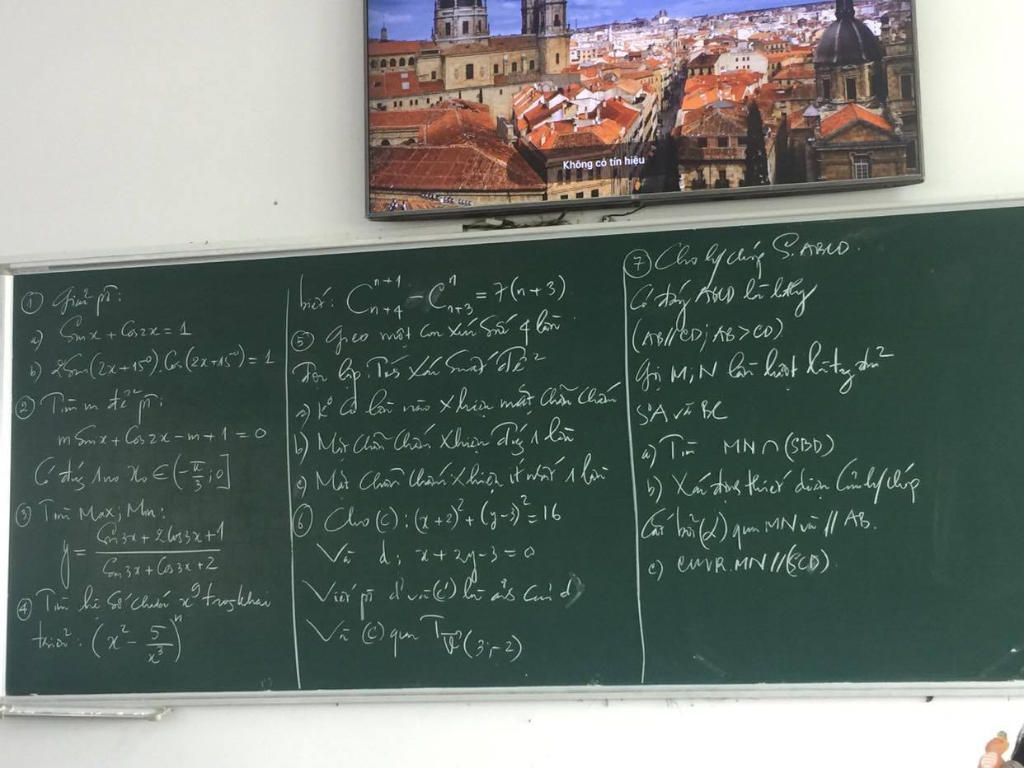 Không có tín hiệu
① Giải pt:
a) Sinx + Cos2x = 1
b) 2Sin(2x+15⁰).Cos(2x+15⁰) = 1
② Tìm m để pt:
mSinx + Cos2x - m + 1 = 0
Có đúng 1 no x₀ ∈ (-π/3; 0]
③ Tìm Max; Min:
y = (Sin3x + 2Cos3x + 1)/(Sin3x + Cos3x + 2)
④ Tìm hệ số chứa x⁹ trong khai
triển: (x² - 5/x³)ⁿ
biết: C_{n+4}^{n+1} - C_{n+3}^{n} = 7(n+3)
⑤ Gieo một con xúc sắc 4 lần
độc lập. Tính xác suất để
a) K⁰ có lần nào xhiện mặt 4 chấm
b) Mặt 4 chấm xhiện đúng 1 lần
c) Mặt 4 chấm xhiện ít nhất 1 lần
⑥ Cho (C): (x+2)² + (y-3)² = 16
Và d: x + 2y - 3 = 0
Viết pt d' và (C') là ảnh của d
Và (C) qua T_{v⃗}(3; -2)
⑦ Cho hchóp S.ABCD.
Có đáy ABCD là hthang
(AB//CD; AB>CD)
Gọi M, N lần lượt là trung điểm
SA và BC
a) Tìm MN ∩ (SBD)
b) Xác định thiết diện của hchóp
Cắt bởi (α) qua MN và // AB.
c) CMR. MN//(SCD)